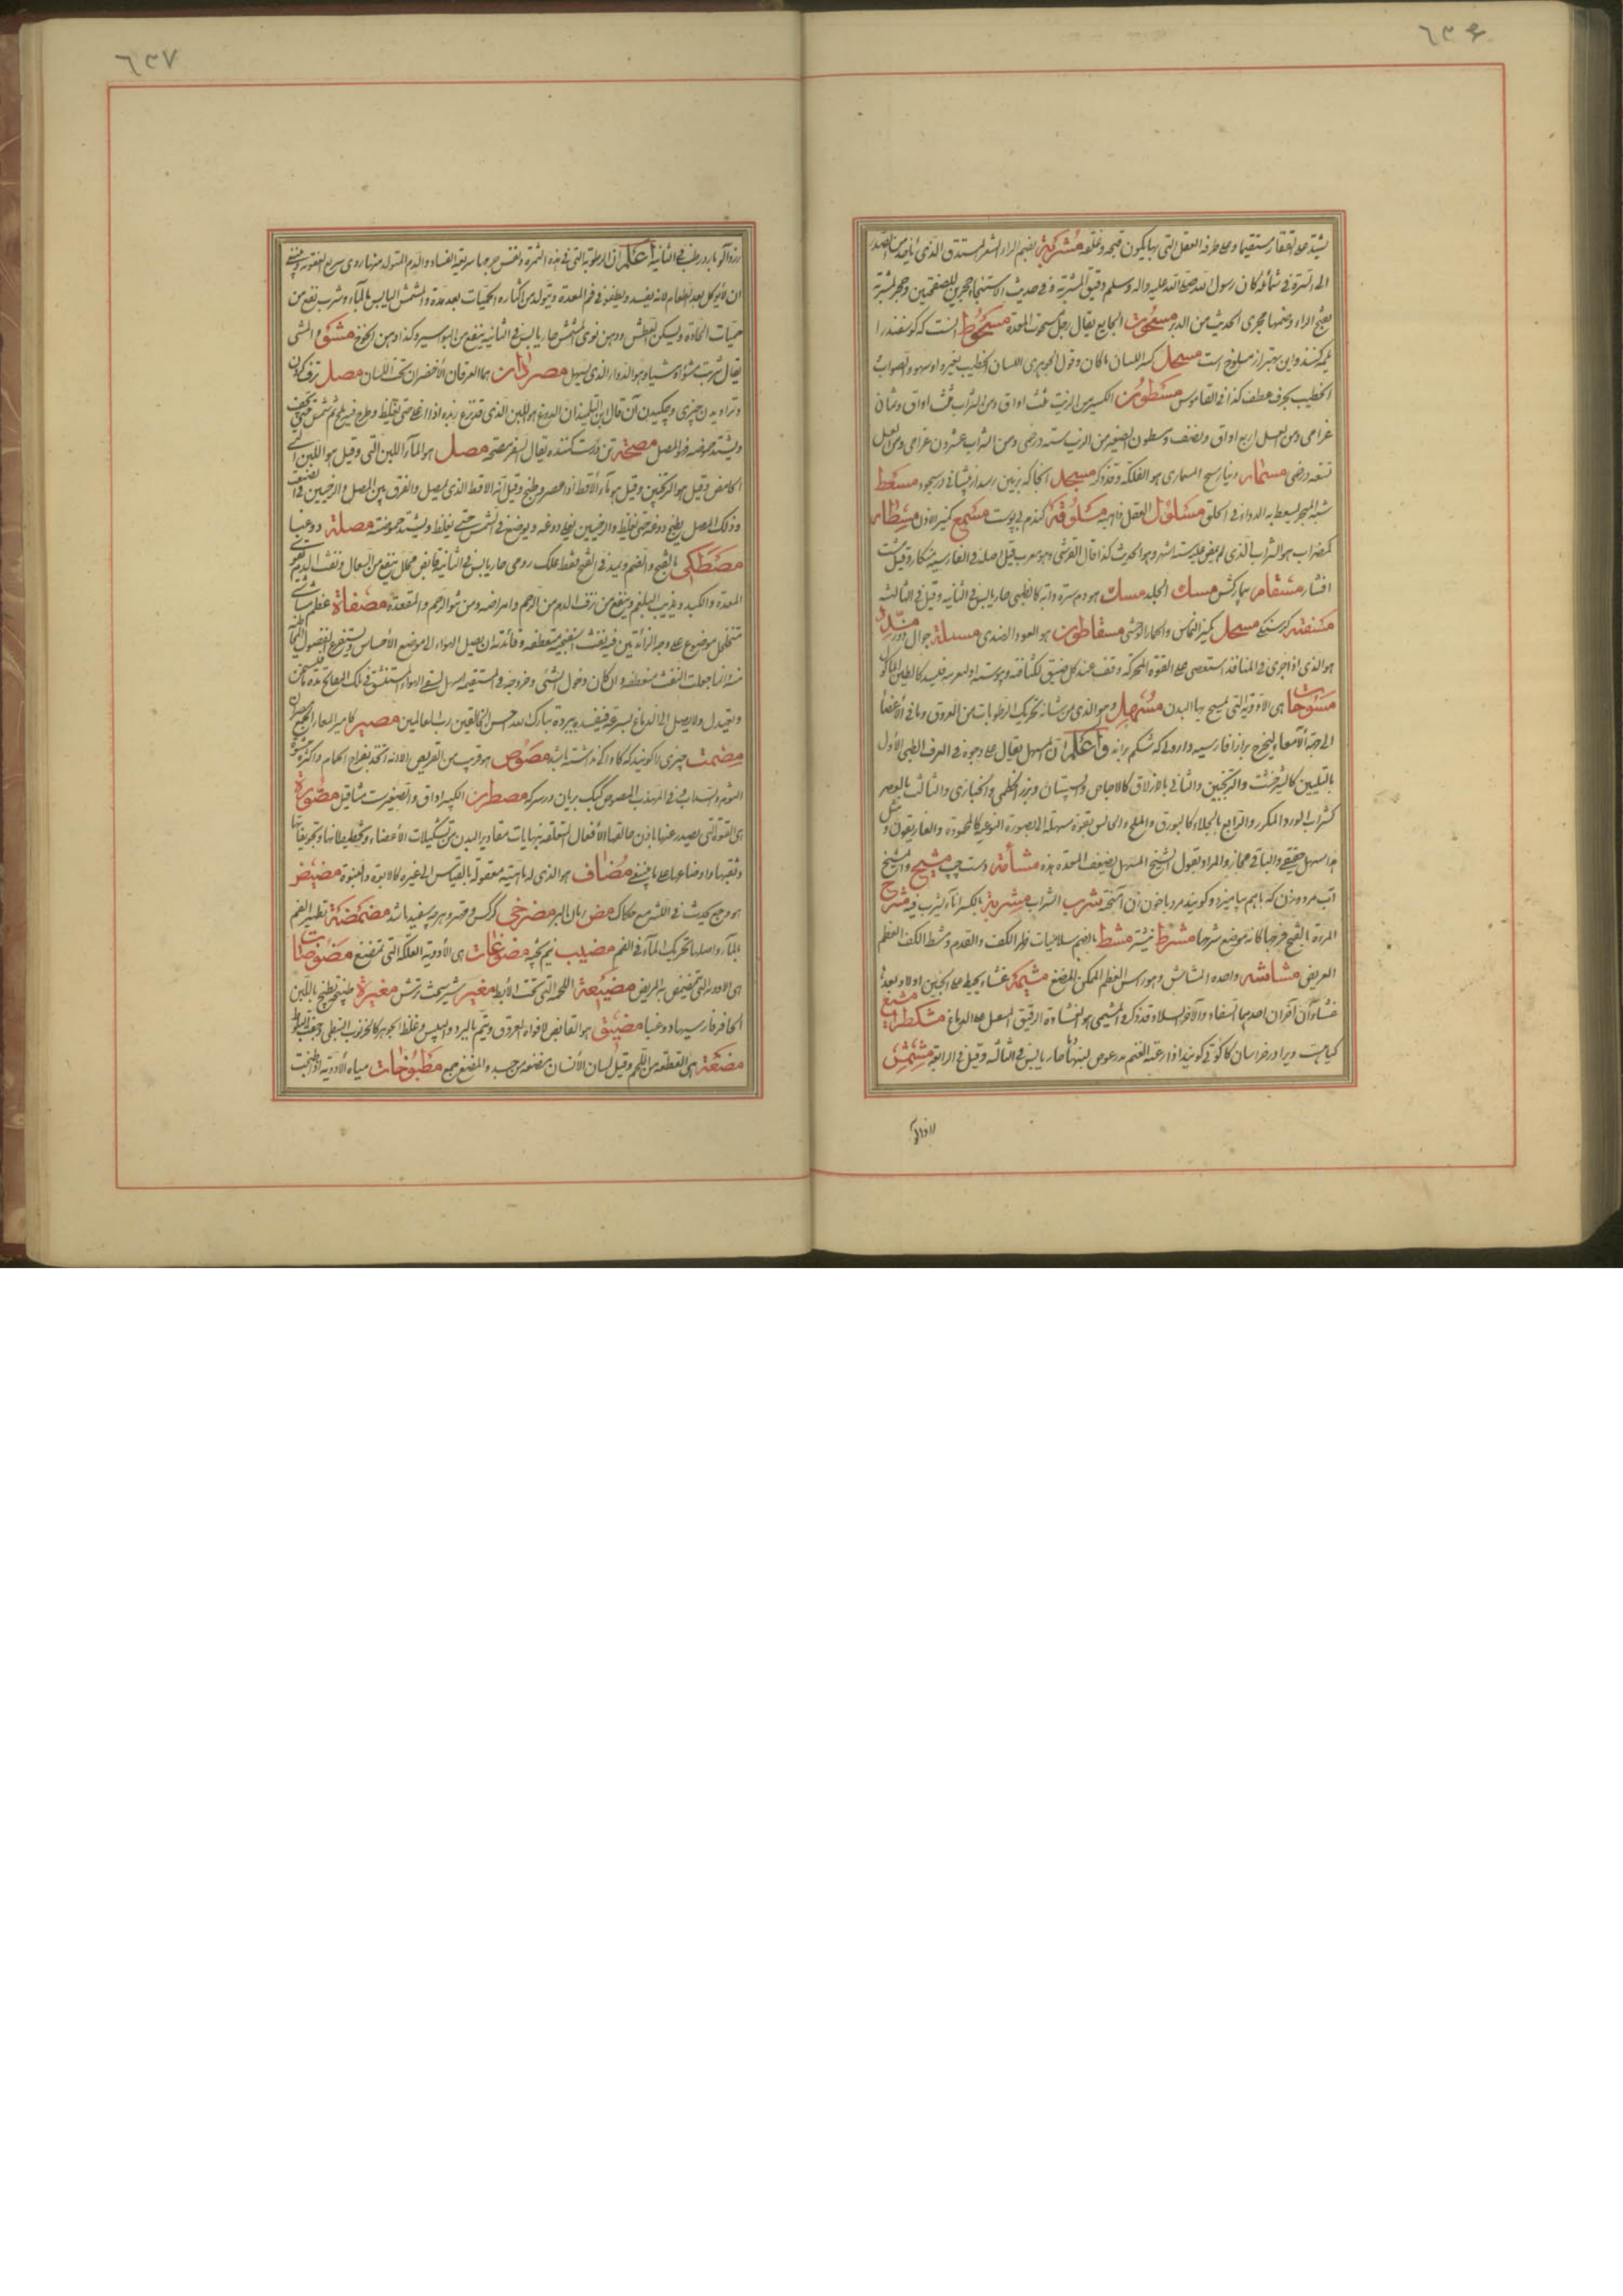 ٦٣٦
يشد على الفقار مستقيما وعلى طرفه العقل التى بها يكون فتحه وغلقه مشربة بضم الراء الشعر المستدق الذى يأخذ من الصدر
الى السرة فى شمائله كان رسول الله صلى الله عليه واله وسلم دقيق المشربة وفى حديث الاستنجاء حجرين للصفحتين وحجر للمشربة
بفتح الراء وضمها مجرى الحديث من الدبر مسحوت الجايع يقال رجل مسحوت المعدة مسحوط آنست كه گوسفند را
گرم كنند واين بهتر از مسلوخ است مسحل كمنبر اللسان ما كان وقول الجوهرى اللسان الخطيب بغير واو سهو والصواب
الخطيب بحرف عطف كذا فى القاموس مسطرون الكبير من الزيت ثلث اواق ومن الشراب ثلث اواق وثمان
غرامى ومن العسل اربع اواق ونصف ومسطرون الصغير من الزيت ستة درخمى ومن الشراب عشرون غرامى ومن العسل
تسعة درخمى
شبه المجر يسعط به الدواء فى الحلق مسلول العقل ذاهبه مسلوقة گندم بى پوست مسمع كمنبر الاذن مسطار
كمضراب هو الشراب الذى لم يمض عليه ستة اشهر وهو الحديث كذا قال القرشى وهو معرب قيل اصله فى الفارسية
افشار مسقام بيماركش مسك الجلد مسك هو دم سرة دابة كالظبى حار يابس فى الثانية وقيل فى الثالثة
مسغبة گرسنگى مسحل كمنبر النحاس والحمار الوحشى مسقاطون هو العود الهندى مسلة جوال دوز مسدد
هو الذى اذا جرى فى المنافذ استعصى على القوة المحركة وقف عند كل مضيق لكثافته ويبوسته او لغروية فليسد كالطين المأكول
مسوحات هى الادوية التى يمسح بها البدن مسهل وهو الذى من شأنه تحريك الرطوبات من العروق وما فى الأعضاء
الى جهة الأمعاء ليخرج براز افارسيه داروئى كه شكم براند واعلم ان المسهل يقال على وجوه فى العرف الطبى الأول
بالتليين كالشيرخشت والترنجبين والثانى بالازلاق كالاجاص والسپستان وبزر الخطمى والخبازى والثالث بالعصر
كشراب الورد المكرر والرابع بالجلاء كالبورق والملح والخامس بقوة مسهلة لا بصورته النوعية كالمحموده والغاريقون
هذا مسهل حقيقى والباقى مجاز والمراد بقول الشيخ المسهل يضعف المعدة هذه مشأمة دست چپ مشيج
آب مرد وزن كه باهم بياميزد وگويند مرد با خون زن آميخته شرب الشراب مشربة بالكسر اناء يشرب فيه مشرح
المرءة بالفتح فرجها كانه موضع شرحها مشرط نيشتر مشط بالضم سلاميات ظهر الكف والقدم ومشط الكف العظم
العريض مشاشه واحدة المشاش وهو رأس العظم الممكن المضغ مشيمة غشاء يحيط على الجنين اولا وبعده
غشاءآن آخران احدهما السفاء والآخر السلا وقد ذكر المشيمى هو الغشاوة الرقيق المشتمل على الدماغ مشكطرامشيغ
گياهيست ويرا در خراسان كاكوتى گويند اذا رعته الغنم لبنها دما حار يابس فى الثالثة وقيل فى الرابعة مشمش
زردآلو
٦٣٧
زردآلو بارد رطب فى الثانية اعلم ان الرطوبة التى فى هذه الثمرة ونفس جرمها سريعة الفساد والدم المتولد منها ردى سريع العفونة وينبغى
ان لا يؤكل بعد الطعام لانه يفسد ويطفو فى فم المعدة ويتولد من اكثاره الحميات بعد مدة والمشمش اليابس بالماء وشرب نفع من
حميات الحادة ويسكن العطش ودهن نوى المشمش حار يابس فى الثانية ينفع من البواسير وكذا دهن الخوخ مشو والمشى
يقال شربت مشوا ومشيا وهو الدواء الذى يسهل مصردان هما العرقان الأخضران تحت اللسان مصل ترف كردن
وتراويدن چيزى وچكيدن آن قال بن التلميذ ان الدوغ هو اللبن الذى قد نزع زبده اذا اغلى حتى يغلظ وطرح فيه ملح ثم شمس حتى يجف
ويشتد حموضه فهو المصل مصحة تن درست كننده يقال السفر مصحة مصل هو الماء اللبن
الحامض وقيل هو الترنجبين وقيل هو ماء الأقط اذا عصر وطبخ وقيل انه الاقط الذى يمصل والفرق بين المصل والرخبين
وذلك المصل يطبخ دوغه حتى يغلظ والرخبين يغلى دوغه ويوضع فى الشمس حتى يغلظ ويشتد حموضته مصلة دوغبا
مصطكى بالفتح والضم ويمد فى الفتح فقط علك رومى حار يابس فى الثانية قابض محلل ينفع من السعال ونفث الدم ويقوى
المعدة والكبد ويذيب البلغم وينفع من نزف الدم من الرحم وامراضه ومن نتو الرحم والمقعدة مصفاة عظم مشاشى
متخلخل موضوع على وجه الزائدتين فيه ثقب اسفنجية منعطفة وفائدته ان يصل الهواء الى موضع الأحساس ويستفرغ الفضول
منه انما جعلت الثقب منعطفة وان كان دخول الشئ وخروجه فى المستقيمة اسهل ليبقى الهواء المستنشق فى تلك المعاطف مدة
ويعتدل ولا يصل الى الدماغ بسرعة فيفسده ببرودة تبارك الله احسن الخالقين رب العالمين مصير كأمير المعاء الجمع مصران
مصمت چيزى را گويند كه كاواكى نداشته باشد مصوص هو قريب من القريص الا انه اتخذ بفراخ الحمام واكثره
الثوم والسذاب وفى المهذب المصوص كبك بريان در سركه مصطرن الكبير اواق والصغير ست مثاقيل مصورة
هى القوة التى يصدر عنها باذن خالقها الأفعال المتعلقة بنهايات مقادير البدن من تشكيلات الأعضاء وتخطيطاتها وتجويفاتها
وثقبها واوضاعها على ما ينبغى مضاف هو الذى له ماهية معقولة بالقياس الى غيره كالابوة والبنوة مضيض
هو وجع يحدث فى اللثة مع حكاك مض رمان البر مضرحى كركس وصقر وهر چه سفيد باشد مضمضة تطهير الفم
بالماء واصلها تحريك الماء فى الفم مضهب نيم پخته مضوغات هى الأدوية العلكة التى تمضغ مضوضات
هى الادوية التى يتمضمض به المريض مضيعة اللحمة التى تحت الأبط مضير شير سخت ترش مضيرة طبيخ يطبخ باللبن
الحاذر فارسيها دوغبا مضيق هو القابض لافواه العروق ويتم بالبرد واليبس وغلظ الجوهر كالخرنوب النبطى وجفت البلوط
مضغة هى القطعة من اللحم وقيل لسان الأنسان مضغة من جسده والمضغ جمع مطبوخات مياه الأدوية اذا طبخت